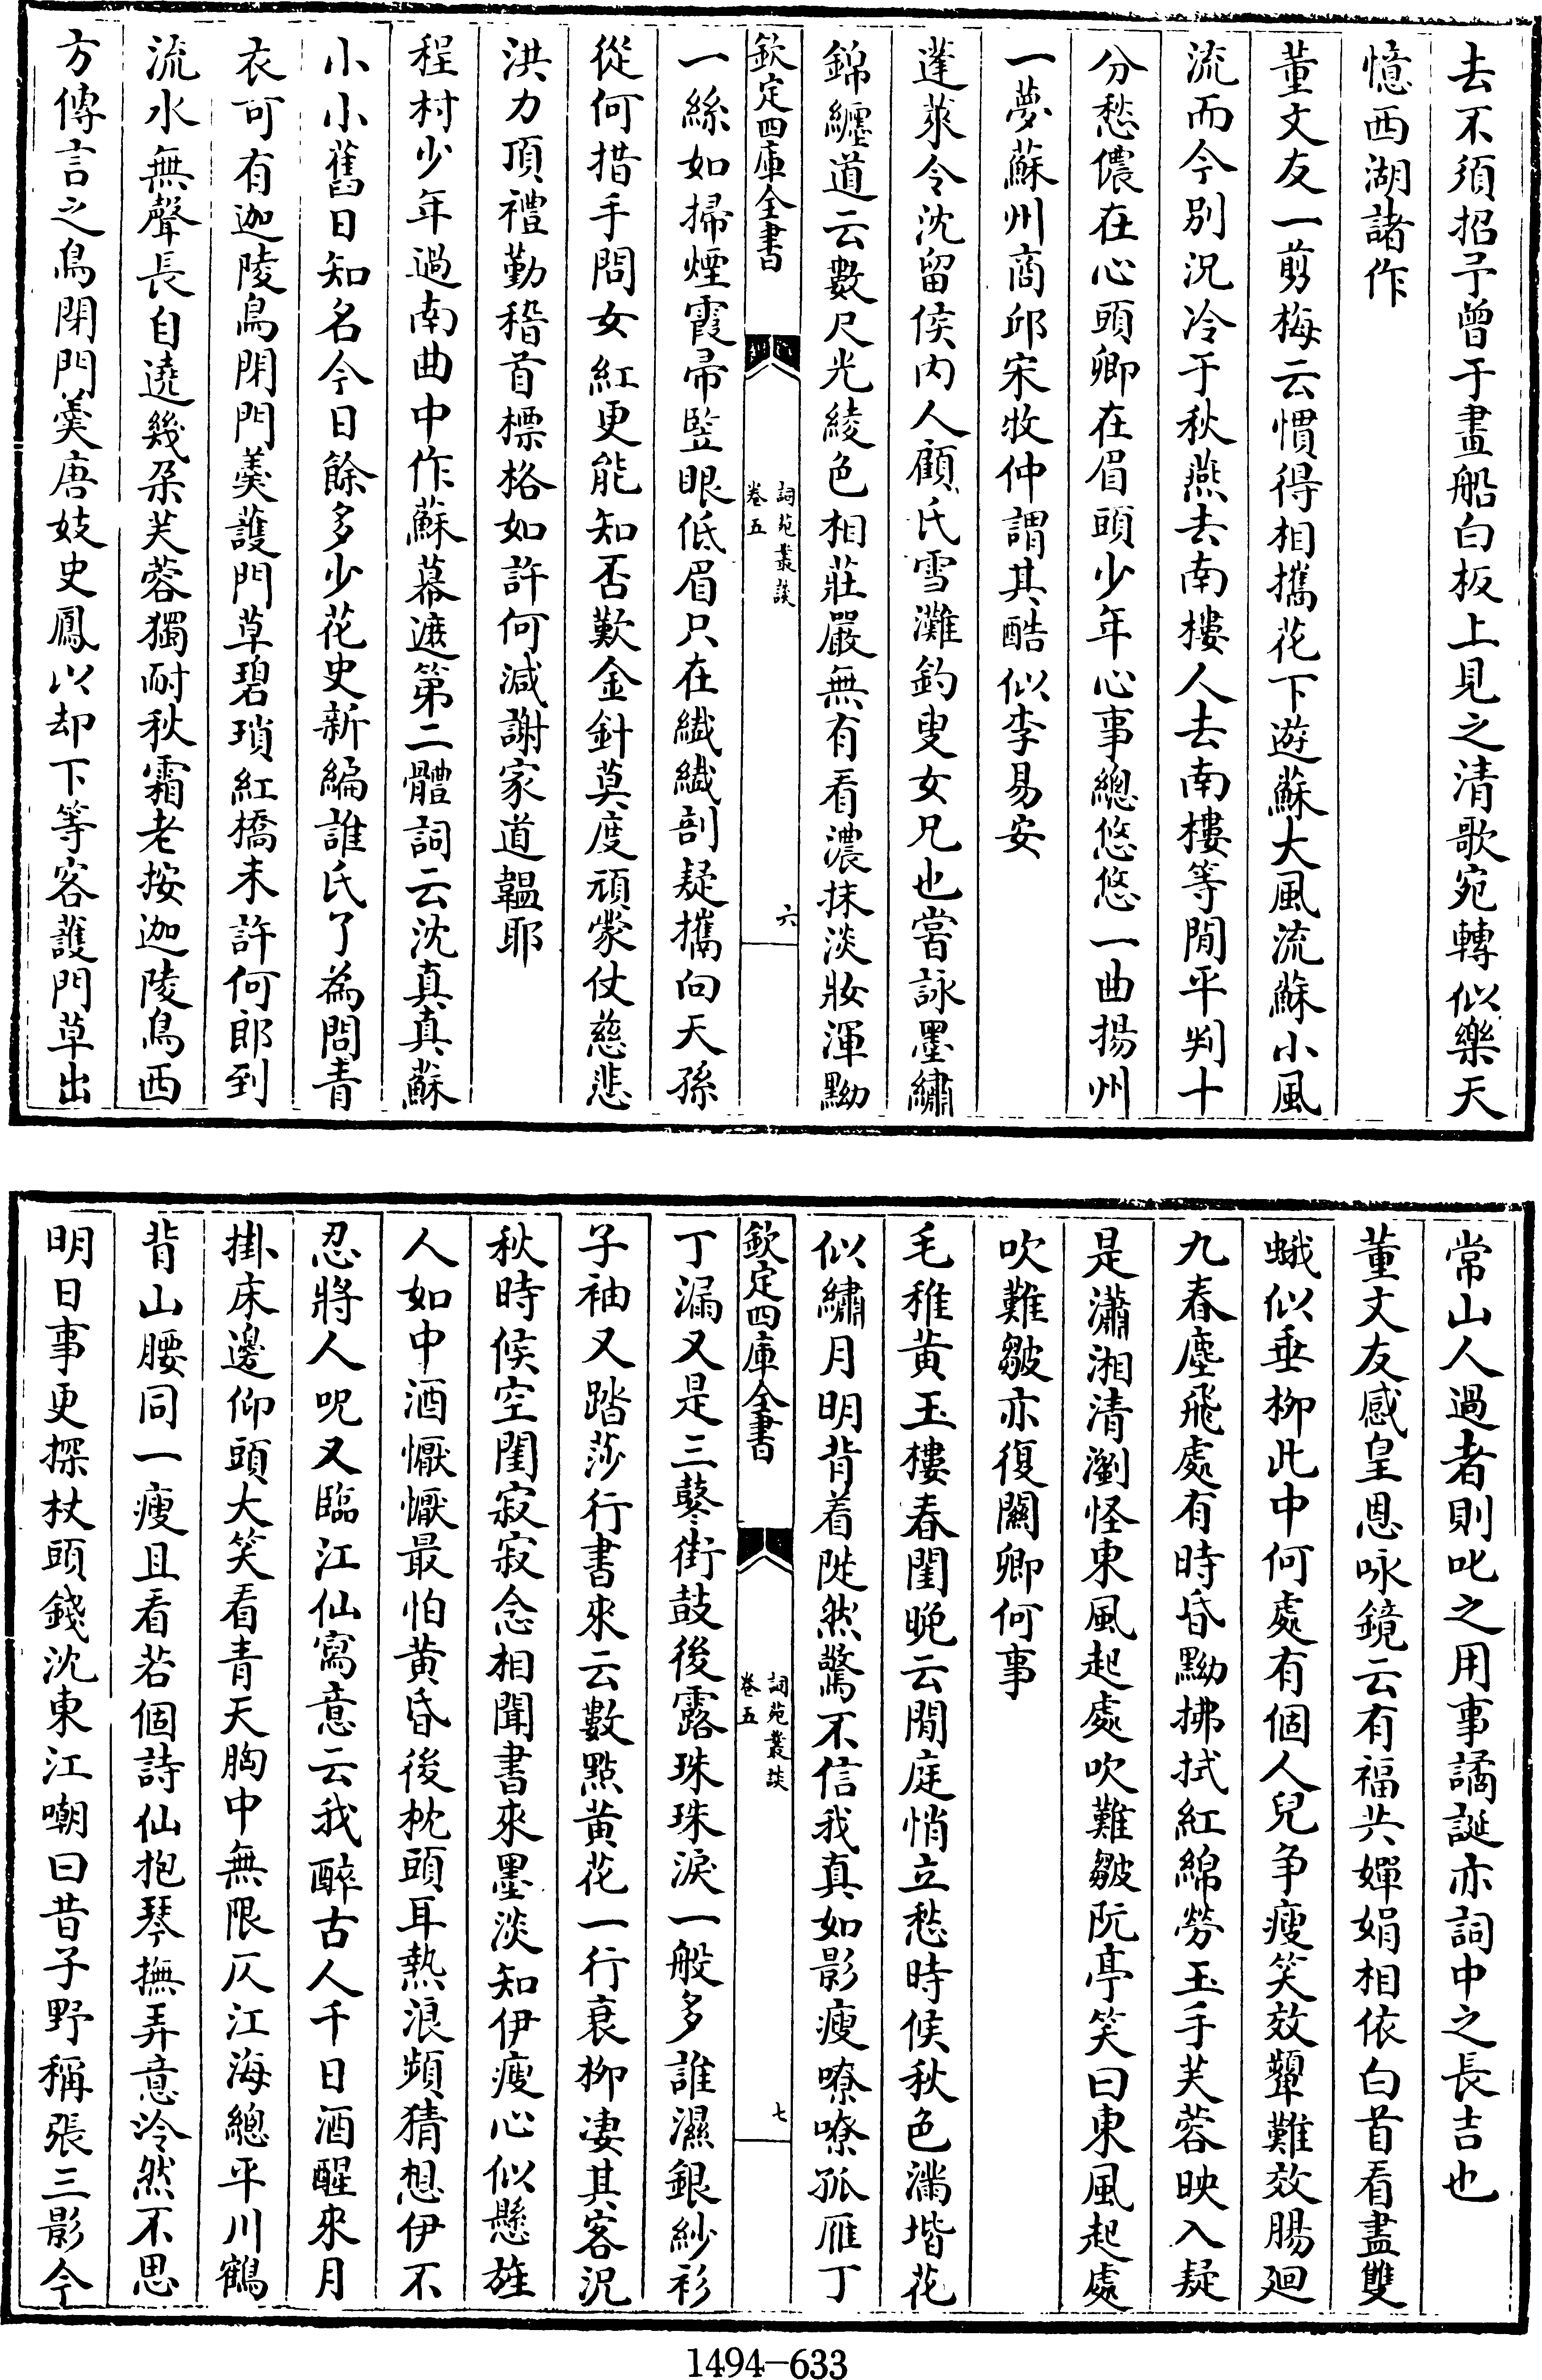 去不須招予曾于畫船白板上見之清歌宛轉似樂天
憶西湖諸作
董文友一剪梅云慣得相攜花下遊蘇大風流蘇小風
流而今別況冷于秋燕去南樓人去南樓等閒平判十
分愁儂在心頭卿在眉頭少年心事總悠悠一曲揚州
一夢蘇州商邱宋牧仲謂其酷似李易安
蓬萊令沈留侯内人顧氏雪灘釣叟女兄也嘗詠墨繡
錦纏道云數尺光綾色相莊嚴無有看濃抹淡妝渾黝
欽定四庫全書
詞苑叢談
卷五
六
一絲如掃煙霞帚豎眼低眉只在纎纎剖疑攜向天孫
從何措手問女紅更能知否歎金針莫度頑蒙仗慈悲
洪力頂禮勤稽首標格如許何減謝家道韞耶
程村少年過南曲中作蘇幕遮第二體詞云沈真真蘇
小小舊日知名今日餘多少花史新編誰氏了為問青
衣可有迦陵鳥閉門羹護門草碧瑣紅橋未許何郎到
流水無聲長自遶幾朶芙蓉獨耐秋霜老按迦陵鳥西
方傳言之鳥閉門羹唐妓史鳳以却下等客護門草出
常山人過者則叱之用事譎誕亦詞中之長吉也
董文友感皇恩咏鏡云有福共嬋娟相依白首看盡雙
蛾似垂柳此中何處有個人兒争瘦笑效顰難效腸迴
九春塵飛處有時昏黝拂拭紅綿勞玉手芙蓉映入疑
是瀟湘清瀏怪東風起處吹難皺阮亭笑曰東風起處
吹難皺亦復闗卿何事
毛稚黄玉樓春閨晚云閒庭悄立愁時候秋色滿堦花
似繡月明背着陡然驚不信我真如影瘦嘹嘹孤雁丁
欽定四庫全書
詞苑叢談
卷五
七
丁漏又是三鼕街鼓後露珠珠淚一般多誰濕銀紗衫
子袖又踏莎行書來云數點黄花一行衰柳淒其客況
秋時候空閨寂寂念相聞書來墨淡知伊瘦心似懸旌
人如中酒懨懨最怕黄昏後枕頭耳熱浪頻猜想伊不
忍將人呪又臨江仙寫意云我醉古人千日酒醒來月
掛床邊仰頭大笑看青天胸中無限仄江海總平川鶴
背山腰同一瘦且看若個詩仙抱琴撫弄意泠然不思
明日事更探杖頭錢沈東江嘲曰昔子野稱張三影今
1494-633